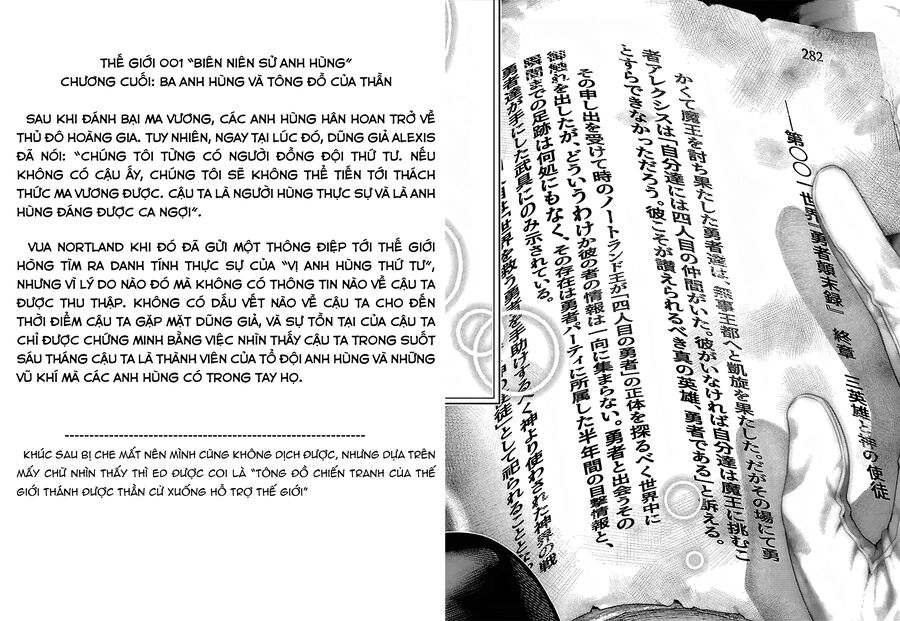 THẾ GIỚI 001 "BIÊN NIÊN SỬ ANH HÙNG"
CHƯƠNG CUỐI: BA ANH HÙNG VÀ TÔNG ĐỒ CỦA THẦN
SAU KHI ĐÁNH BẠI MA VƯƠNG, CÁC ANH HÙNG HÂN HOAN TRỞ VỀ
THỦ ĐÔ HOÀNG GIA. TUY NHIÊN, NGAY TẠI LÚC ĐÓ, DŨNG GIẢ ALEXIS
ĐÃ NÓI: "CHÚNG TÔI TỪNG CÓ NGƯỜI ĐỒNG ĐỘI THỨ TƯ. NẾU
KHÔNG CÓ CẬU ẤY, CHÚNG TÔI SẼ KHÔNG THỂ TIẾN TỚI THÁCH
THỨC MA VƯƠNG ĐƯỢC. CẬU TA LÀ NGƯỜI HÙNG THỰC SỰ VÀ LÀ ANH
HÙNG ĐÁNG ĐƯỢC CA NGỢI".
VUA NORTLAND KHI ĐÓ ĐÃ GỬI MỘT THÔNG ĐIỆP TỚI THẾ GIỚI
HÒNG TÌM RA DANH TÍNH THỰC SỰ CỦA "VỊ ANH HÙNG THỨ TƯ",
NHƯNG VÌ LÝ DO NÀO ĐÓ MÀ KHÔNG CÓ THÔNG TIN NÀO VỀ CẬU TA
ĐƯỢC THU THẬP. KHÔNG CÓ DẤU VẾT NÀO VỀ CẬU TA CHO ĐẾN
THỜI ĐIỂM CẬU TA GẶP MẶT DŨNG GIẢ, VÀ SỰ TỒN TẠI CỦA CẬU TA
CHỈ ĐƯỢC CHỨNG MINH BẰNG VIỆC NHÌN THẤY CẬU TA TRONG SUỐT
SÁU THÁNG CẬU TA LÀ THÀNH VIÊN CỦA TỔ ĐỘI ANH HÙNG VÀ NHỮNG
VŨ KHÍ MÀ CÁC ANH HÙNG CÓ TRONG TAY HỌ.
KHÚC SAU BỊ CHE MẤT NÊN MÌNH CŨNG KHÔNG DỊCH ĐƯỢC, NHƯNG DỰA TRÊN
MẤY CHỮ NHÌN THẤY THÌ ED ĐƯỢC COI LÀ "TÔNG ĐỒ CHIẾN TRANH CỦA THẾ
GIỚI THÁNH ĐƯỢC THẦN CỬ XUỐNG HỖ TRỢ THẾ GIỚI"
282
──第〇〇一世界『勇者顛末録』 終章 三英雄と神の使徒
かくて魔王を討ち果たした勇者達は、無事王都へと凱旋を果たした。だがその場にて勇
者アレクシスは「自分達には四人目の仲間がいた。彼がいなければ自分達は魔王に挑むこ
とすらできなかっただろう。彼こそが讃えられるべき真の英雄、勇者である」と訴える。
その申し出を受けて時のノートランド王が「四人目の勇者」の正体を探るべく世界中に
御触れを出したが、どういうわけか彼の者の情報は一向に集まらない。勇者と出会うその
瞬間までの足跡は何処にもなく、その存在は勇者パーティに所属した半年間の目撃情報と、
勇者達が手にした武具にのみ示されている。
は「世界を救う勇者を手助けするべく神より使わされた神界の戦
使徒」として祀られることと